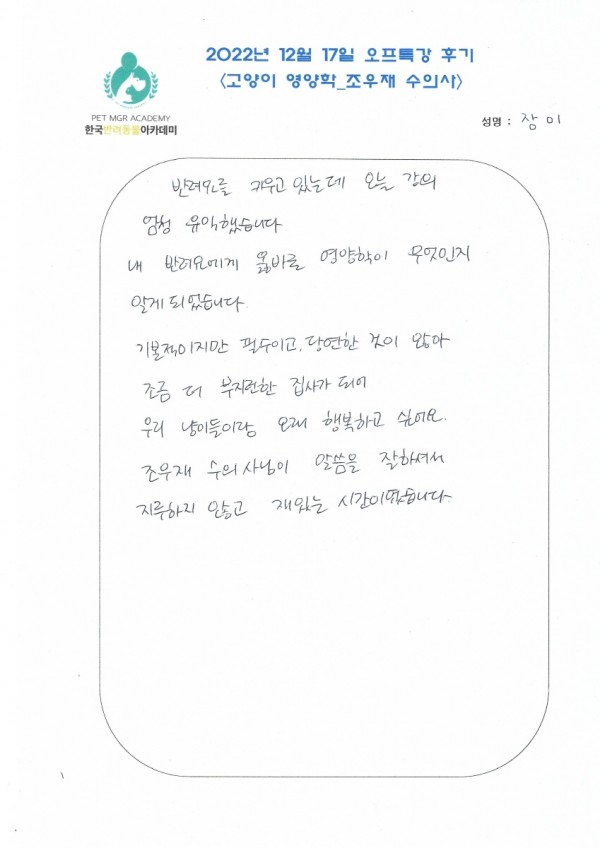 2022년 12월 17일 오프특강 후기
<고양이 영양학_조우재 수의사>
PET MGR ACADEMY
한국반려동물아카데미
성명 : 잠미
반려묘를 키우고 있는데 오늘 강의
엄청 유익했습니다
내 반려묘에게 옳바를 영양학이 무엇인지
알게 되었습니다.
기본적이지만 필수이고, 당연한 것이 많아
조금 더 부지런한 집사가 되어
우리 냥이들이랑 오래 행복하고 싶어요.
조우재 수의사님이 말씀을 잘하셔서
지루하지 않고 재있는 시간이였습니다.